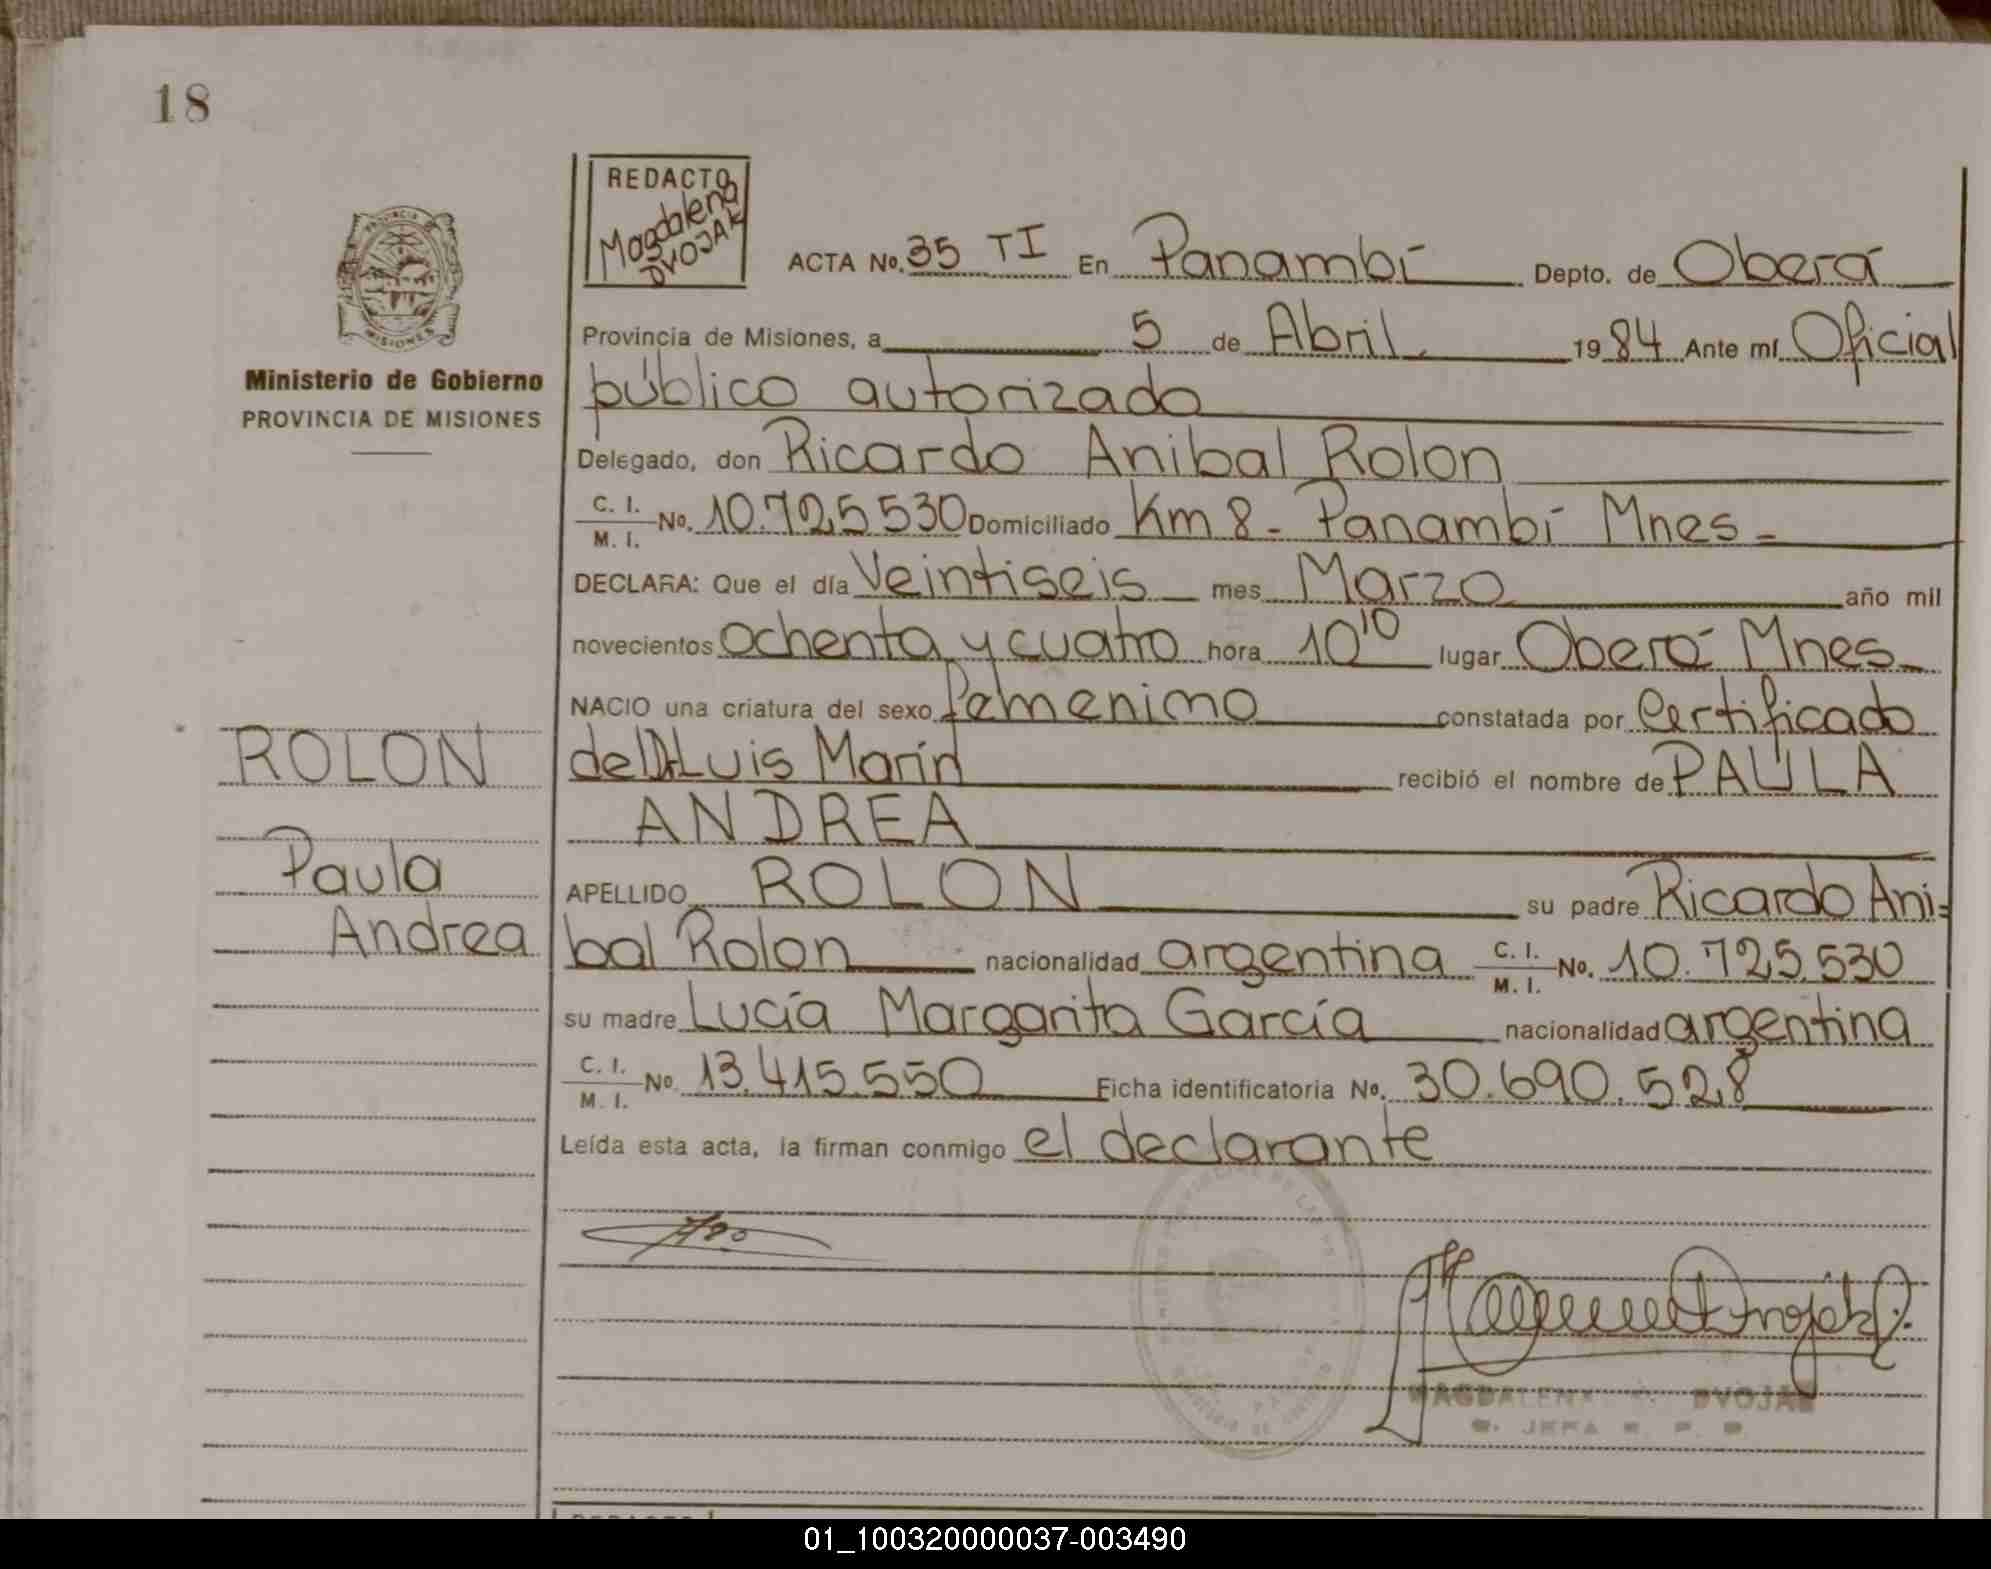 18
REDACTO
Magdalena
DVOJAK
PROVINCIA
MISIONES
Ministerio de Gobierno
PROVINCIA DE MISIONES
ACTA No. 35 TI En Panambí Depto. de Oberá
Provincia de Misiones, a 5 de Abril 1984 Ante mí Oficial
público autorizado
Delegado, don Ricardo Anibal Rolon
C. I. M. I. No. 10.725530 Domiciliado Km 8 - Panambí Mnes -
DECLARA: Que el día Veintiseis mes Marzo año mil
novecientos ochenta y cuatro hora 10 10 lugar Oberá Mnes
NACIO una criatura del sexo femenino constatada por Certificado
del Dr Luis Marín recibió el nombre de PAULA
ANDREA
APELLIDO ROLON su padre Ricardo Ani=
bal Rolon nacionalidad argentina C. I. M. I. No. 10.725.530
su madre Lucía Margarita García nacionalidad argentina
C. I. M. I. No. 13.415.550 Ficha identificatoria No. 30.690.528
Leída esta acta, la firman conmigo el declarante
ROLON
Paula
Andrea
MAGDALENA DVOJAK
JEFA
01_100320000037-003490